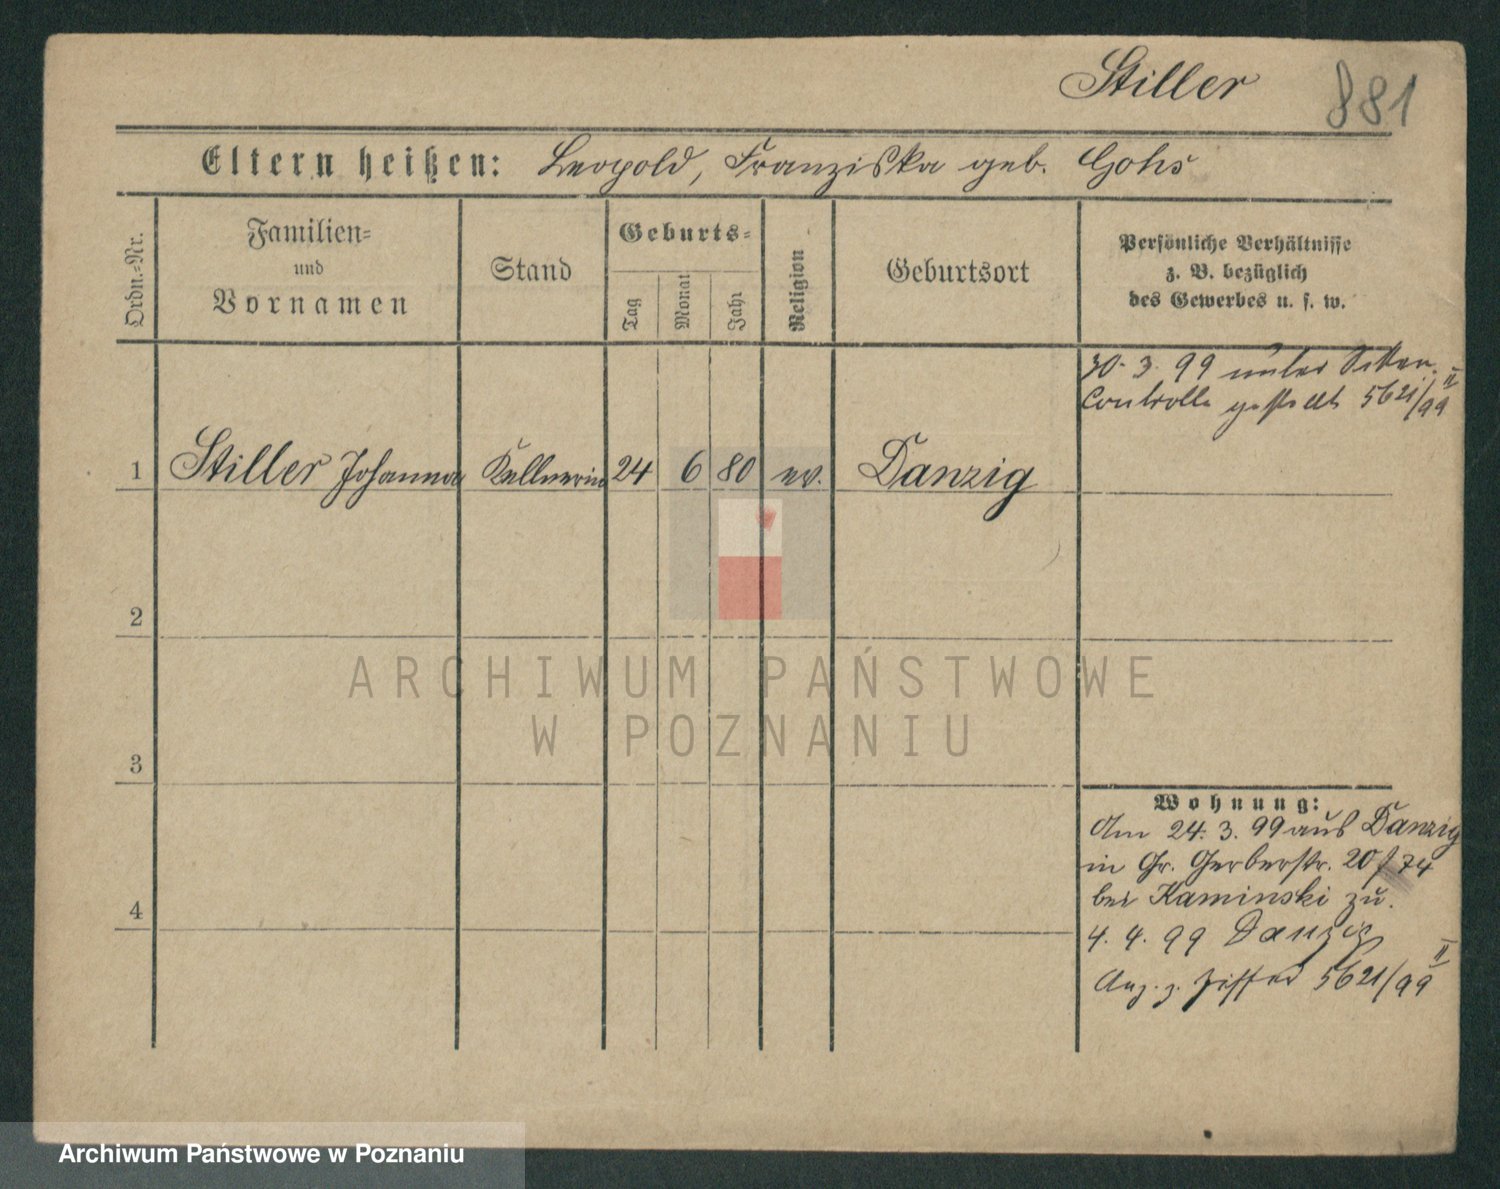 Stiller 881
Eltern heißen: Leopold, Franziska geb. Gohs
Ordn.-Nr.
Familien-
und
Vornamen
Stand
Geburts-
Tag
Monat
Jahr
Religion
Geburtsort
Persönliche Verhältnisse
z. B. bezüglich
des Gewerbes u. s. w.
30. 3. 99 unter Sitten
Controlle gestellt 5621/99 II
1 Stiller Johanna Kellnerin 24 6 80 ev. Danzig
2
3
4
Wohnung:
Am 24. 3. 99 aus Danzig
in Gr. Gerberstr. 20 / 74
bei Kaminski zu.
4. 4. 99 Danzig
Anz. z. Ziffer 5621/99 II
ARCHIWUM PAŃSTWOWE
W POZNANIU
Archiwum Państwowe w Poznaniu